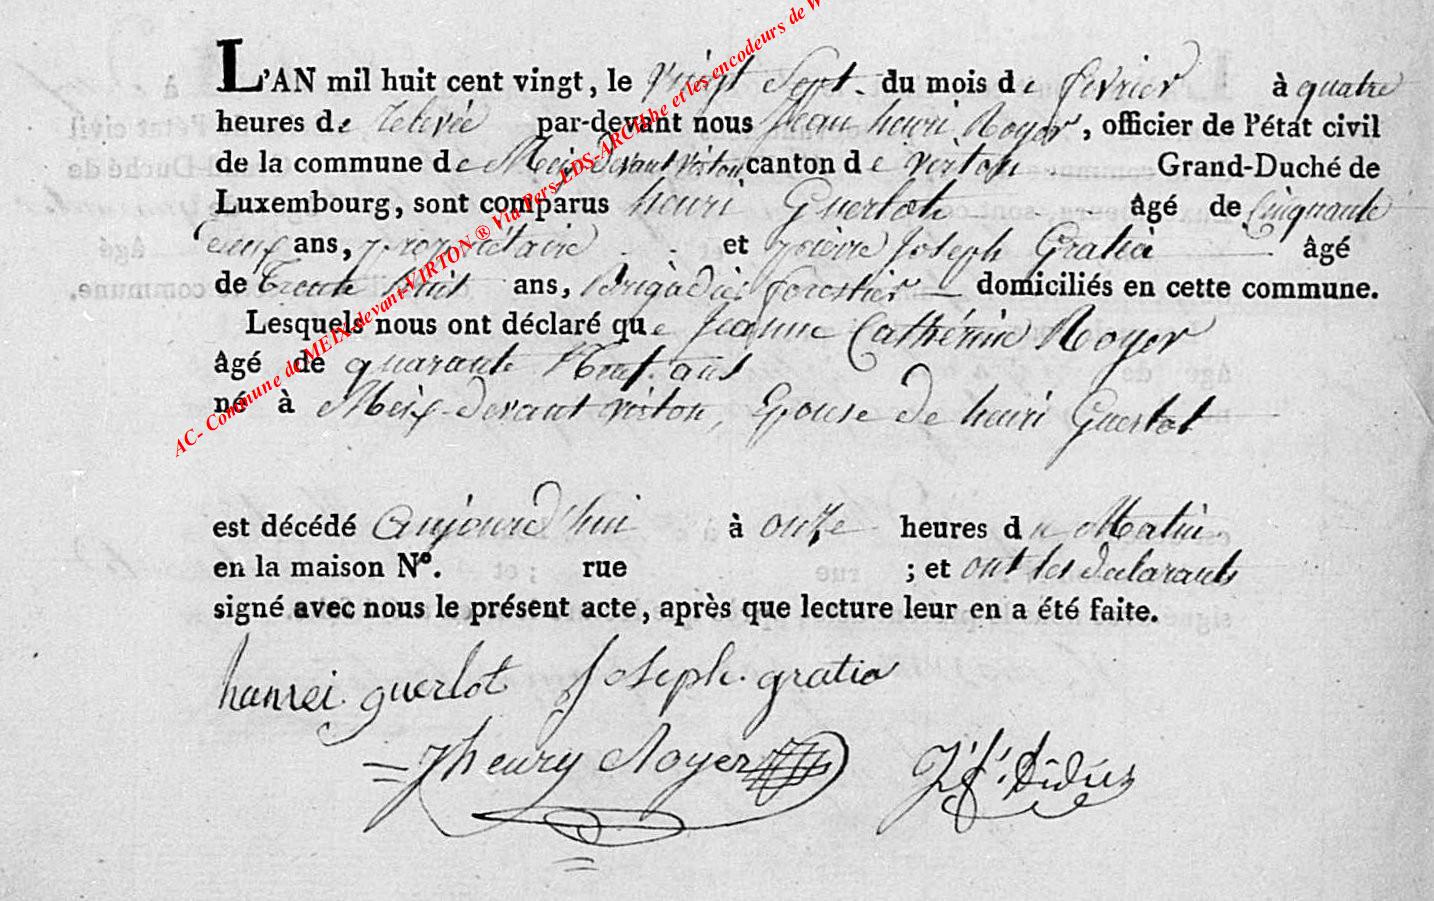 L'AN mil huit cent vingt, le vingt Sept du mois de février à quatre
heures de relevée par-devant nous Jean henri Royer, officier de l'état civil
de la commune de Meix-devant virton canton de virton Grand-Duché de
Luxembourg, sont comparus henri Guerlot âgé de Cinquante
neuf ans, propriétaire et pierre Joseph Gratia âgé
de Trente huit ans, Brigadier forestier domiciliés en cette commune.
Lesquels nous ont déclaré que Jeanne Cathérine Royer
âgé de quarante neuf ans
né à Meix-devant virton, Epouse de henri Guerlot
est décédé aujourd'hui à onze heures du Matin
en la maison N°. rue ; et ont les déclarants
signé avec nous le présent acte, après que lecture leur en a été faite.
hanrei guerlot Joseph gratia
Jhenry Royer J: f: Didier
AC- Commune de MEIX-devant-VIRTON ® Via Pers-LDS-ARCH.be et les encodeurs de